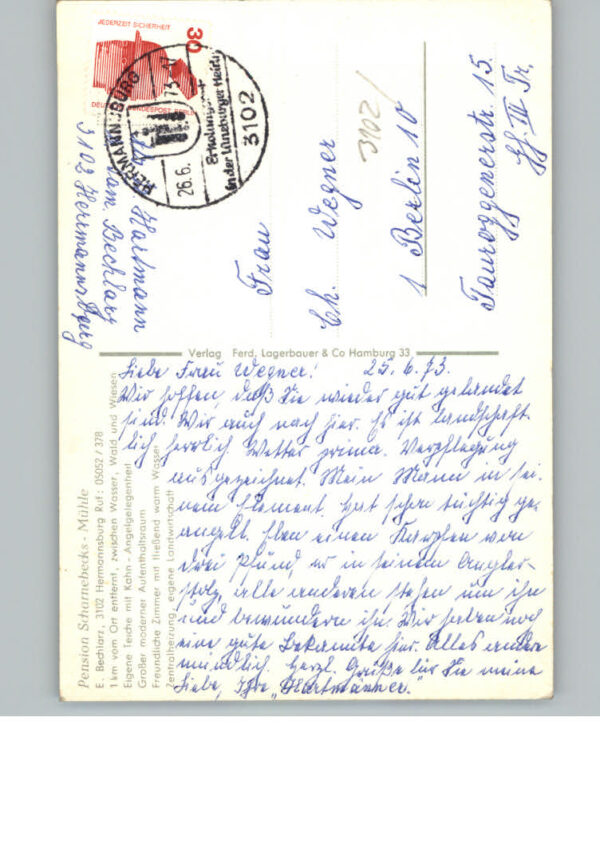 JEDERZEIT SICHERHEIT
30
DEUTSCHE BUNDESPOST BERLIN
HERMANNSBURG
26.6.73
Erholung
in der Lüneburger Heide
3102
Hartmann
Pam. Bechlarz
3102 Hermannsburg
Frau
Ch. Wegner
3102/
1 Berlin 10
Tauroggenerstr. 15
Gf. III Tr.
Verlag Ferd. Lagerbauer & Co Hamburg 33
Pension Scharnebecks-Mühle
E. Bechlarz, 3102 Hermannsburg Ruf: 05052/378
1 km vom Ort entfernt, zwischen Wasser, Wald und Wiesen
Eigene Teiche mit Kahn - Angelgelegenheit
Großer moderner Aufenthaltsraum
Freundliche Zimmer mit fließend warm Wasser
Zentralheizung, eigene Landwirtschaft
Liebe Frau Wegner! 25.6.73.
Wir hoffen, daß Sie wieder gut gelandet
sind. Wir auch nach hier. Es ist landschaft-
lich herrlich. Wetter prima. Verpflegung
ausgezeichnet. Mein Mann in sei-
nem Element. Hat schon tüchtig ge-
angelt. Eben einen Karpfen von
drei Pfund, er in seinem Angler-
stolz, alle anderen stehen um ihn
und bewundern ihn. Wir haben noch
eine gute Bekannte hier. Alles andere
mündlich. Herzl. Grüße für Sie meine
Liebe, Ihre "Hartmänner."